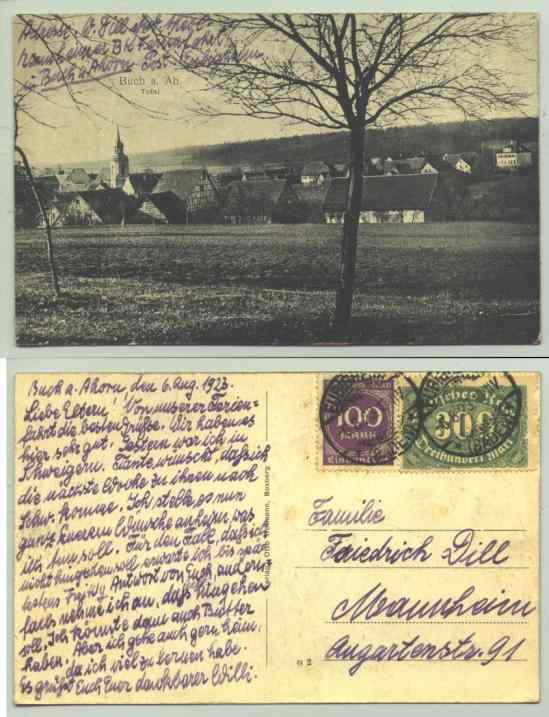 Adresse: W. Dill
Mannheimer BK Ferienfahrt
in Buch a. Ahorn Post
Buch a. Ah.
Total
Buch a. Ahorn den 6. Aug. 1923.
Liebe Eltern! Von unserer Ferien-
fahrt die besten Grüße. Wir haben es
hier sehr gut. Gestern war ich in
Schweigern. Tante wünscht, daß ich
die nächste Woche zu ihnen nach
Schw. komme. Ich stelle es nun
ganz Eurem Wunsche anheim was
ich tun soll. Für den Fall, daß ich
nicht hingehen soll erwarte ich bis späte-
stens Freitag Antwort von Euch, andern-
falls nehme ich an, daß ich hingehen
soll. Ich könnte dann auch Butter
haben. Aber ich gehe auch gern heim,
da ich viel zu lernen habe.
Es grüßt Euch Euer dankbarer Willi.
Otto Boxberg
100
MARK
300
Dreihundert Mark
Familie
Friedrich Dill
Mannheim
Augartenstr. 91
N 2